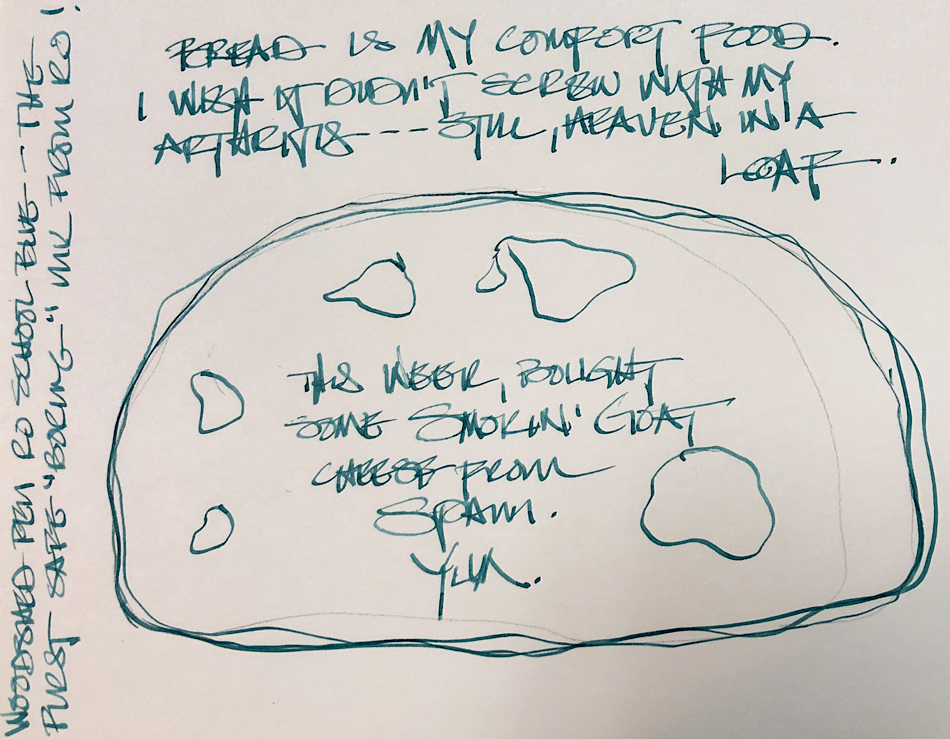 BREAD IS MY COMFORT FOOD.
I WISH IT DIDN'T SCREW WITH MY
ARTHRITIS --- STILL, HEAVEN IN A
LOAF.
THIS WEEK, BOUGHT
SOME SMOKIN' GOAT
CHEESE FROM
SPAIN.
YUM.
WOODSHED PEN RO SCHOOL BLUE --- THE
FIRST SAFE "BORING" INK FROM RO!